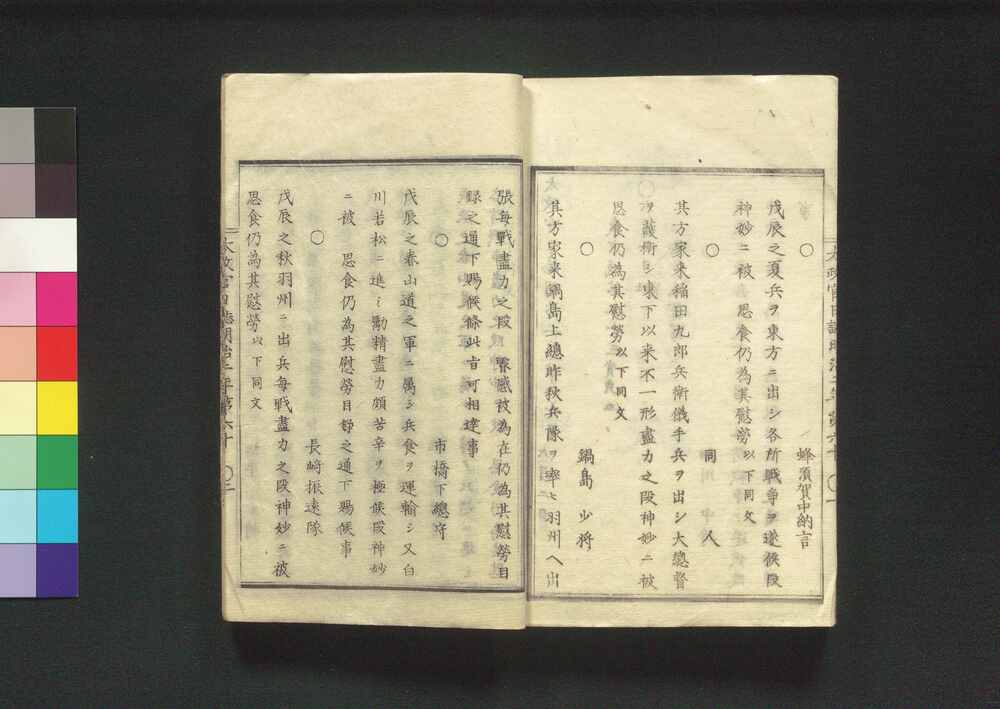 ○ 蜂須賀中納言
戊辰之夏兵ヲ東方ニ出シ各所戦争ヲ遂候段
神妙ニ被 思食仍為其慰勞以下同文
○ 同 人
其方家来稲田九郎兵衛儀手兵ヲ出シ大總督
ヲ護衛シ東下以来不一形盡力之段神妙ニ被
思食仍為其慰勞以下同文
○ 鍋島 少将
其方家来鍋島上總昨秋兵隊ヲ率ヒ羽州ヘ出
張毎戰盡力之段 叡感被為在仍為其慰勞目
録之通下賜候條此旨可相達事
○ 市橋下總守
戊辰之春山道之軍ニ属シ兵食ヲ運輸シ又白
川若松ニ進ミ勵精盡力頗苦辛ヲ極候段神妙
ニ被 思食仍為其慰勞目録之通下賜候事
○ 長崎振遠隊
戊辰之秋羽州ニ出兵毎戰盡力之段神妙ニ被
思食仍為其慰勞以下同文
太政官日誌明治二年第六十